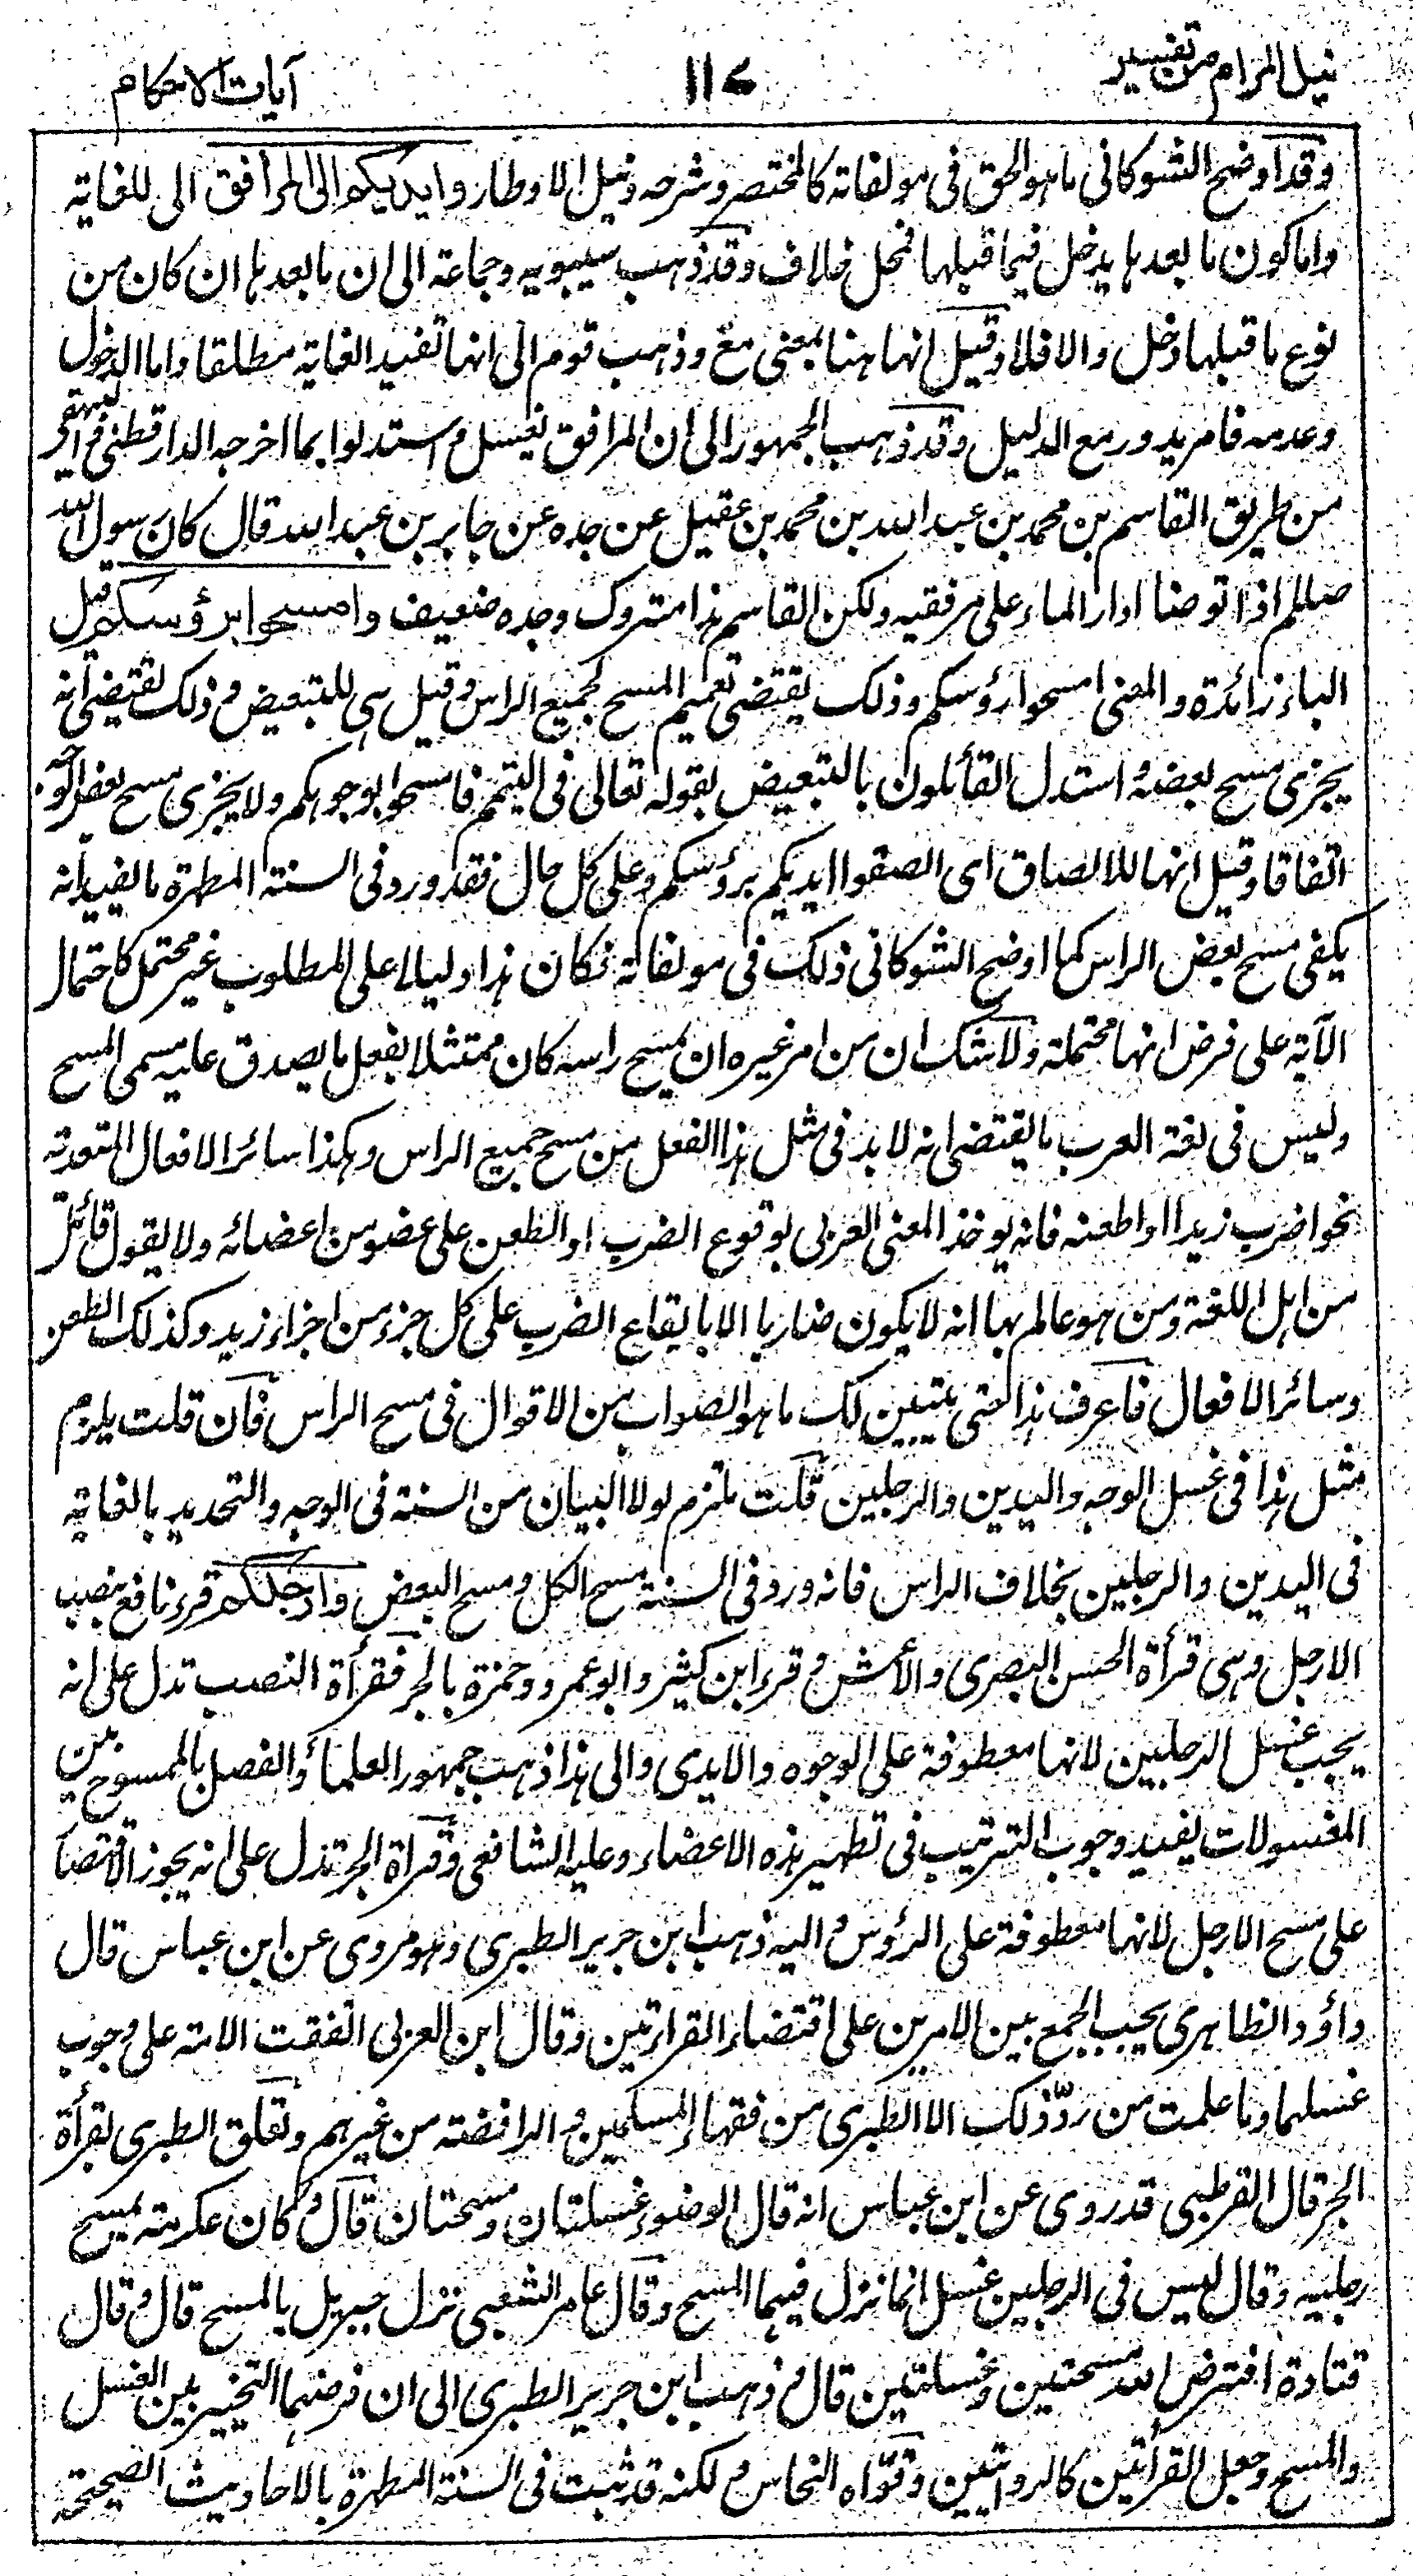 نيل المرام من تفسير ١١٧ آيات الاحكام
وقد اوضح الشوكانى ما هو الحق فى مولفاته كالمختصر وشرحه ونيل الاوطار وايديكم الى المرافق الى للغاية
واما كون ما بعدها يدخل فيما قبلها فمحل خلاف وقد ذهب سيبويه وجماعة الى ان ما بعدها ان كان من
نوع ما قبلها دخل والا فلا وقيل انها هنا بمعنى مع وذهب قوم الى انها تفيد الغاية مطلقا واما الدخول
وعدمه فامر يدور مع الدليل وقد ذهب الجمهور الى ان المرافق تغسل واستدلوا بما اخرجه الدارقطنى والبيهقى
من طريق القاسم بن محمد بن عبد الله بن محمد بن عقيل عن جده عن جابر بن عبد الله قال كان رسول الله
صللم اذا توضا ادار الماء على مرفقيه ولكن القاسم هذا متروك وجده ضعيف وامسحوا برؤسكم قيل
الباء زائدة والمعنى امسحوا رؤسكم وذلك يقتضى تعميم المسح لجميع الراس وقيل هى للتبعيض وذلك يقتضى انه
يجزى مسح بعضه واستدل القائلون بالتبعيض بقوله تعالى فى التيمم فامسحوا بوجوهكم ولا يجزى مسح بعض الوجه
اتفاقا وقيل انها للالصاق اى الصقوا ايديكم برؤسكم وعلى كل حال فقد ورد فى السنة المطهرة ما يفيد انه
يكفى مسح بعض الراس كما اوضح الشوكانى ذلك فى مولفاته فكان هذا دليلا على المطلوب غير محتمل كاحتمال
الآية على فرض انها محتملة ولا شك ان من امر غيره ان يمسح راسه كان ممتثلا بفعل ما يصدق عليه مسمى المسح
وليس فى لغة العرب ما يقتضى انه لا بد فى مثل هذا الفعل من مسح جميع الراس وهكذا سائر الافعال المتعدية
نحو اضرب زيدا او اطعنه فانه يوخذ المعنى العربى بوقوع الضرب او الطعن على عضو من اعضائه ولا يقول قائل
من اهل اللغة ومن هو عالم بها انه لا يكون ضاربا الا بايقاع الضرب على كل جزء من اجزاء زيد وكذلك الطعن
وسائر الافعال فاعرف هذا حتى يتبين لك ما هو الصواب من الاقوال فى مسح الراس فان قلت يلزم
مثل هذا فى غسل الوجه واليدين والرجلين قلت ملتزم لولا البيان من السنة فى الوجه والتحديد بالغاية
فى اليدين والرجلين بخلاف الراس فانه ورد فى السنة مسح الكل ومسح البعض وارجلكم قرء نافع بنصب
الارجل وهى قرأة الحسن البصرى والأعمش وقرء ابن كثير وابو عمرو وحمزة بالجر فقرأة النصب تدل على انه
يجب غسل الرجلين لانها معطوفة على الوجوه والايدى والى هذا ذهب جمهور العلماء والفصل بالممسوح بين
المغسولات يفيد وجوب الترتيب فى تطهير هذه الاعضاء وعليه الشافعى وقرأة الجر تدل على انه يجوز الاقتصا
على مسح الارجل لانها معطوفة على الرؤس واليه ذهب ابن جرير الطبرى وهو مروى عن ابن عباس قال
داؤد الظاهرى يجب الجمع بين الامرين على اقتضاء القراءتين وقال ابن العربى اتفقت الامة على وجوب
غسلهما وما علمت من ردّ ذلك الا الطبرى من فقهاء المسلمين والرافضة من غيرهم وتعلق الطبرى بقرأة
الجر قال القرطبى قد روى عن ابن عباس انه قال الوضوء غسلتان ومسحتان قال وكان عكرمة يمسح
رجليه وقال ليس فى الرجلين غسل انما نزل فيهما المسح وقال عامر الشعبى نزل جبريل بالمسح قال وقال
قتادة افترض الله مسحتين وغسلتين قال وذهب ابن جرير الطبرى الى ان فرضهما التخيير بين الغسل
والمسح وجعل القرأتين كالروايتين وقوّاه النحاس ولكنه قد ثبت فى السنة المطهرة بالاحاديث الصحيحة